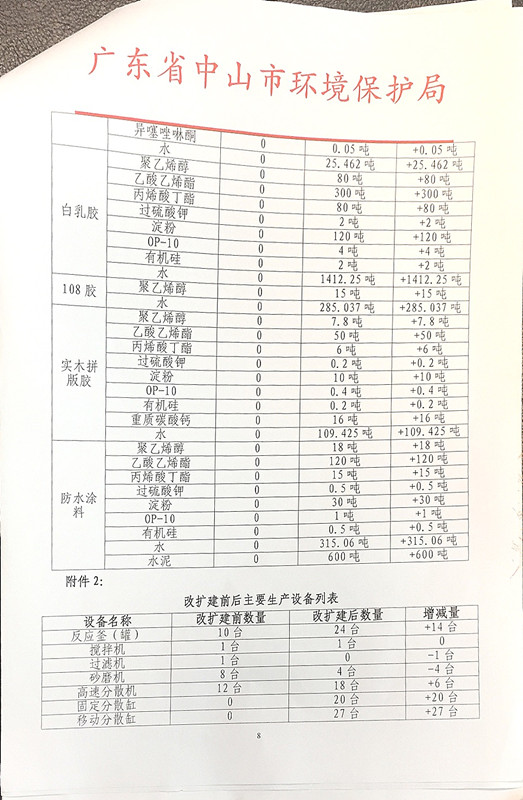 广东省中山市环境保护局
异噻唑啉酮 0 0.05吨 +0.05吨
水 0 25.462吨 +25.462吨
聚乙烯醇 0 80吨 +80吨
乙酸乙烯酯 0 300吨 +300吨
丙烯酸丁酯 0 80吨 +80吨
白乳胶 过硫酸钾 0 2吨 +2吨
淀粉 0 120吨 +120吨
OP-10 0 4吨 +4吨
有机硅 0 2吨 +2吨
水 0 1412.25吨 +1412.25吨
108胶 聚乙烯醇 0 15吨 +15吨
水 0 285.037吨 +285.037吨
聚乙烯醇 0 7.8吨 +7.8吨
乙酸乙烯酯 0 50吨 +50吨
丙烯酸丁酯 0 6吨 +6吨
实木拼 过硫酸钾 0 0.2吨 +0.2吨
版胶 淀粉 0 10吨 +10吨
OP-10 0 0.4吨 +0.4吨
有机硅 0 0.2吨 +0.2吨
重质碳酸钙 0 16吨 +16吨
水 0 109.425吨 +109.425吨
聚乙烯醇 0 18吨 +18吨
乙酸乙烯酯 0 120吨 +120吨
丙烯酸丁酯 0 15吨 +15吨
防水涂 过硫酸钾 0 0.5吨 +0.5吨
料 淀粉 0 30吨 +30吨
OP-10 0 1吨 +1吨
有机硅 0 0.5吨 +0.5吨
水 0 315.06吨 +315.06吨
水泥 0 600吨 +600吨
附件2:
改扩建前后主要生产设备列表
设备名称 改扩建前数量 改扩建后数量 增减量
反应釜(罐) 10台 24台 +14台
搅拌机 1台 1台 0
过滤机 1台 0 -1台
砂磨机 8台 4台 -4台
高速分散机 12台 18台 +6台
固定分散缸 0 20台 +20台
移动分散缸 0 27台 +27台
8